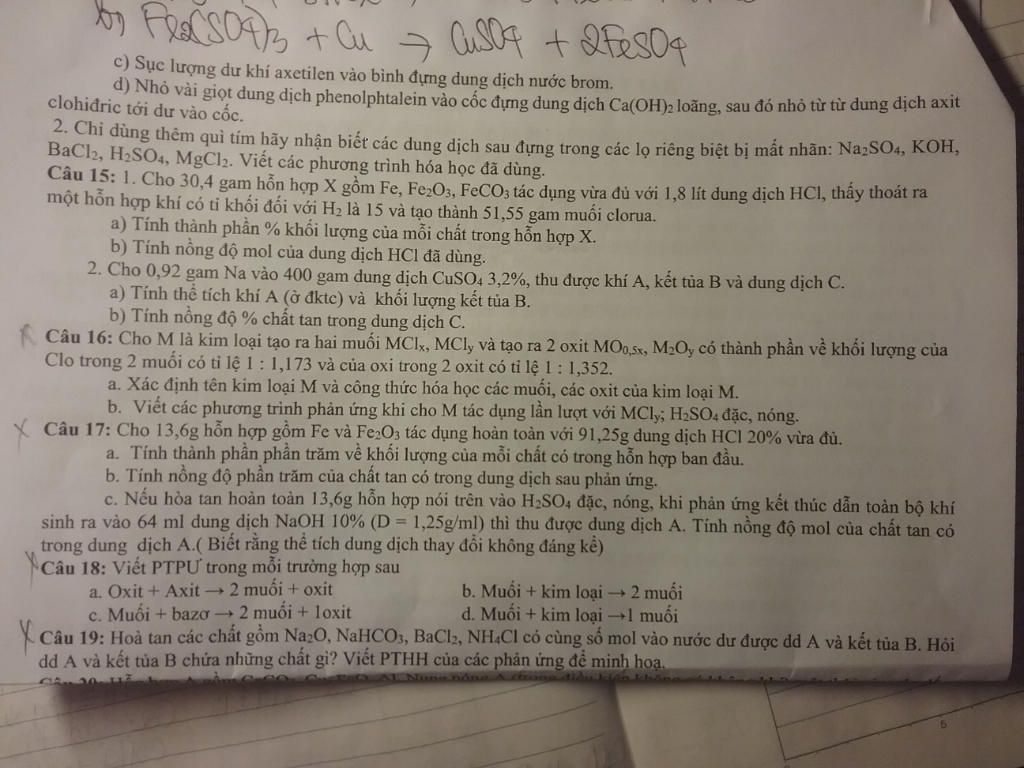 b) Fe2(SO4)3 + Cu → CuSO4 + 2FeSO4
c) Sục lượng dư khí axetilen vào bình đựng dung dịch nước brom.
d) Nhỏ vài giọt dung dịch phenolphtalein vào cốc đựng dung dịch Ca(OH)2 loãng, sau đó nhỏ từ từ dung dịch axit
clohiđric tới dư vào cốc.
2. Chỉ dùng thêm quì tím hãy nhận biết các dung dịch sau đựng trong các lọ riêng biệt bị mất nhãn: Na2SO4, KOH,
BaCl2, H2SO4, MgCl2. Viết các phương trình hóa học đã dùng.
Câu 15: 1. Cho 30,4 gam hỗn hợp X gồm Fe, Fe2O3, FeCO3 tác dụng vừa đủ với 1,8 lít dung dịch HCl, thấy thoát ra
một hỗn hợp khí có tỉ khối đối với H2 là 15 và tạo thành 51,55 gam muối clorua.
a) Tính thành phần % khối lượng của mỗi chất trong hỗn hợp X.
b) Tính nồng độ mol của dung dịch HCl đã dùng.
2. Cho 0,92 gam Na vào 400 gam dung dịch CuSO4 3,2%, thu được khí A, kết tủa B và dung dịch C.
a) Tính thể tích khí A (ở đktc) và khối lượng kết tủa B.
b) Tính nồng độ % chất tan trong dung dịch C.
Câu 16: Cho M là kim loại tạo ra hai muối MClx, MCly và tạo ra 2 oxit MO0,5x, M2Oy có thành phần về khối lượng của
Clo trong 2 muối có tỉ lệ 1 : 1,173 và của oxi trong 2 oxit có tỉ lệ 1 : 1,352.
a. Xác định tên kim loại M và công thức hóa học các muối, các oxit của kim loại M.
b. Viết các phương trình phản ứng khi cho M tác dụng lần lượt với MCly; H2SO4 đặc, nóng.
Câu 17: Cho 13,6g hỗn hợp gồm Fe và Fe2O3 tác dụng hoàn toàn với 91,25g dung dịch HCl 20% vừa đủ.
a. Tính thành phần phần trăm về khối lượng của mỗi chất có trong hỗn hợp ban đầu.
b. Tính nồng độ phần trăm của chất tan có trong dung dịch sau phản ứng.
c. Nếu hòa tan hoàn toàn 13,6g hỗn hợp nói trên vào H2SO4 đặc, nóng, khi phản ứng kết thúc dẫn toàn bộ khí
sinh ra vào 64 ml dung dịch NaOH 10% (D = 1,25g/ml) thì thu được dung dịch A. Tính nồng độ mol của chất tan có
trong dung dịch A.( Biết rằng thể tích dung dịch thay đổi không đáng kể)
Câu 18: Viết PTPƯ trong mỗi trường hợp sau
a. Oxit + Axit → 2 muối + oxit b. Muối + kim loại → 2 muối
c. Muối + bazơ → 2 muối + 1oxit d. Muối + kim loại →1 muối
Câu 19: Hoà tan các chất gồm Na2O, NaHCO3, BaCl2, NH4Cl có cùng số mol vào nước dư được dd A và kết tủa B. Hỏi
dd A và kết tủa B chứa những chất gì? Viết PTHH của các phản ứng để minh hoạ.
5